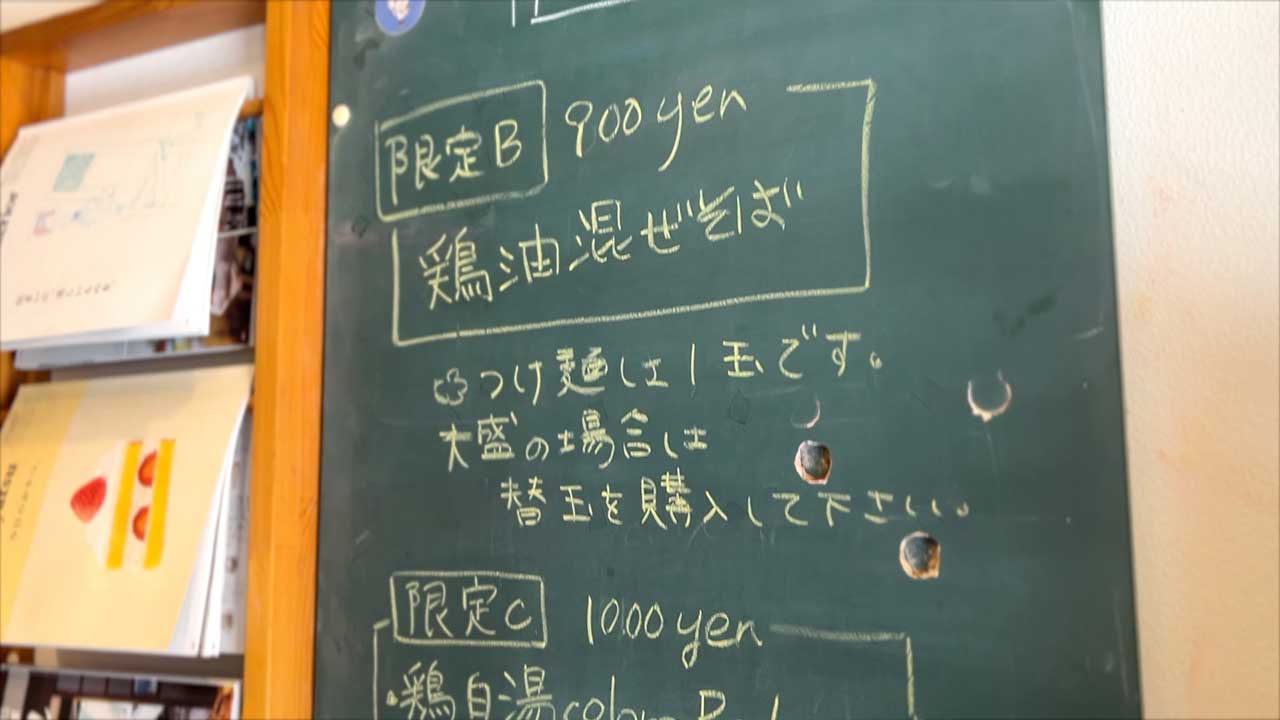 限定B 900yen
鶏油混ぜそば
つけ麺は1玉です。
大盛の場合は
替玉を購入して下さい。
限定C 1000yen
鶏白湯color